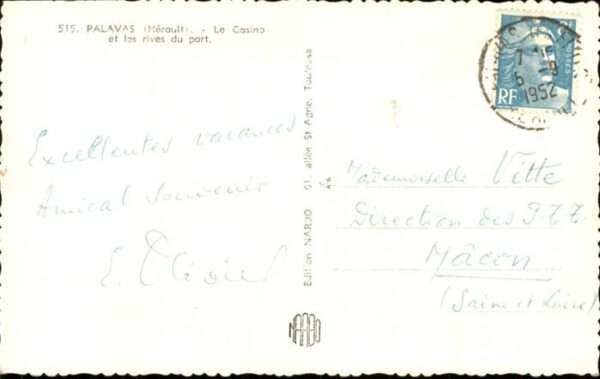 515. PALAVAS (Hérault). - Le Casino
et les rives du port.
Excellentes vacances
Amical Souvenir
E. Olivier
Edition NARBO 51, allée St Agne, Toulouse
NARBO
7
6 -9
1952
RF
Mademoiselle Vitte
Direction des PTT
Mâcon
(Saône et Loire)